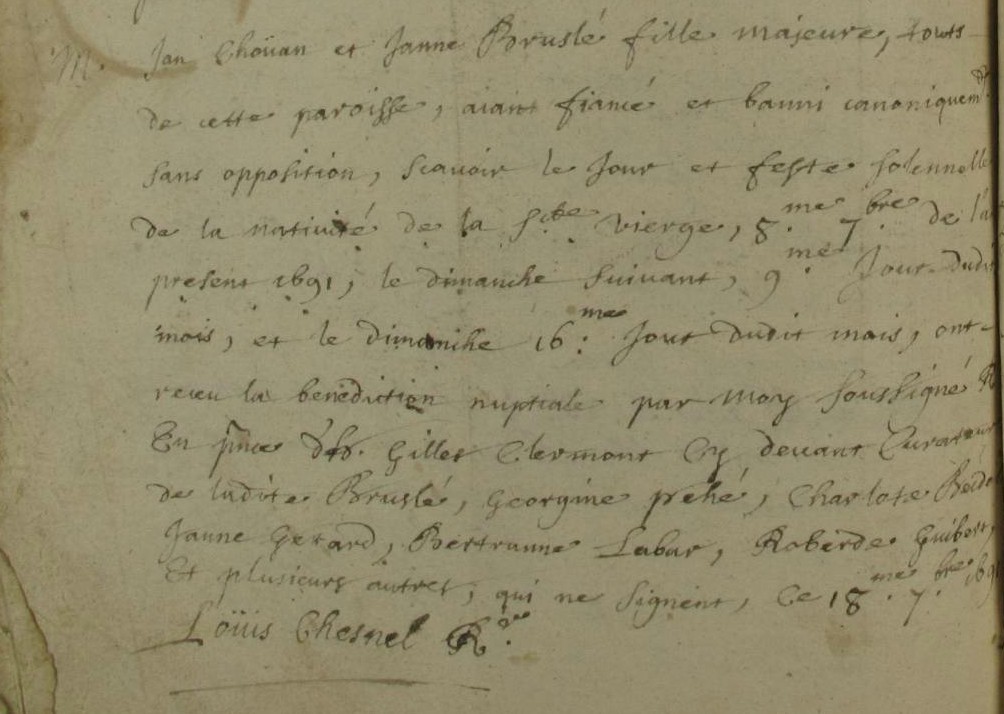 M. Jan Choüan et Janne Bruslé fille majeure, touts
de cette paroisse, aiant fiancé et banni canoniquemt
sans opposition, scavoir le jour et feste solennelle
de la nativité de la Scte vierge, 8.me 7.bre de l'a
present 1691, le dimanche suivant, 9.me jour dudit
mois, et le dimanche 16.me jour dudit mois, ont
receu la benediction nuptiale par moy soussigné R
En pnce de Gilles Clermont cy devant Curateur
de ladite Bruslé, Georgine prehé, Charlote
Janne Gerard, Bertranne Labar, Roberde Guibert,
Et plusieurs autres, qui ne signent, ce 18.me 7.bre 169
Loüis Chesnel R.